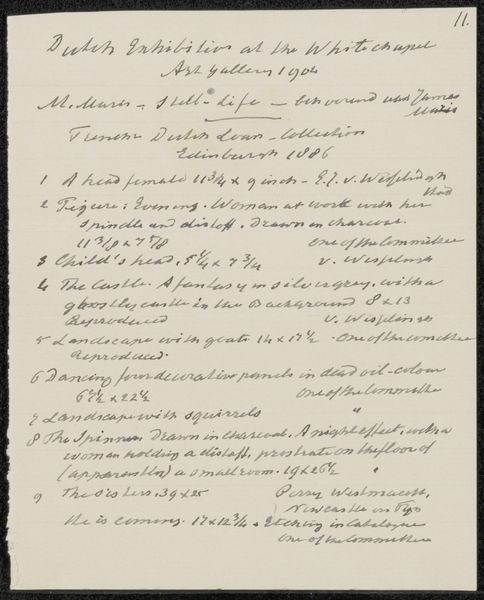 11.
Dutch Exhibition at the Whitechapel
Art Gallery 1904
M. Maris – Still-Life – James
Maris
French Dutch Loan-Collection
Edinburgh 1886
1 A head female 11 3/4 x 9 inch – E.J. v. Wisselingh
2 Figure: Evening. Woman at work with her
spindle and distaff. Drawn in charcoal.
11 3/8 x 7 5/8 one of the Committee
3 Child's head. 5 1/4 x 7 3/4 v. Wisselingh
4 The Castle. A fantasy in silvergrey, with a
ghostly castle in the Background 8 x 13
Reproduced v. Wisselingh
5 Landscape with goats 14 x 17 1/2 - One of the committee
Reproduced.
6 Dancing four decorative panels in dead oil-colour
x 22 1/2 one of the Committee
7 Landscape with squirrels "
8 The Spinner Drawn in charcoal. A night effect, with a
woman holding a distaff, prostrate on the floor of
(apparently) a small room. 19 x 26 1/2 "
9 The Sisters. 39 x 25 Percy Westmacott,
Newcastle on Tyne
He is coming. 17 x 12 3/4 . Etching in Catalogue
One of the Committee